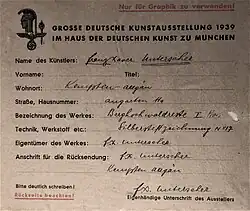 Nur für Graphik zu verwenden!
GROSSE DEUTSCHE KUNSTAUSSTELLUNG 1939
IM HAUS DER DEUTSCHEN KUNST ZU MÜNCHEN
Name des Künstlers: Franz Xaver Unterseher
Vorname: Titel:
Wohnort: Kempten Allgäu
Straße, Hausnummer:
Bezeichnung des Werkes: I
Technik, Werkstoff etc.: Silberstiftzeichnung
Eigentümer des Werkes: Fx. Unterseher
Anschrift für die Rücksendung: Fx. Unterseher
Kempten Allgäu
Bitte deutlich schreiben!
Rückseite beachten!
Fx. Unterseher
Eigenhändige Unterschrift des Ausstellers